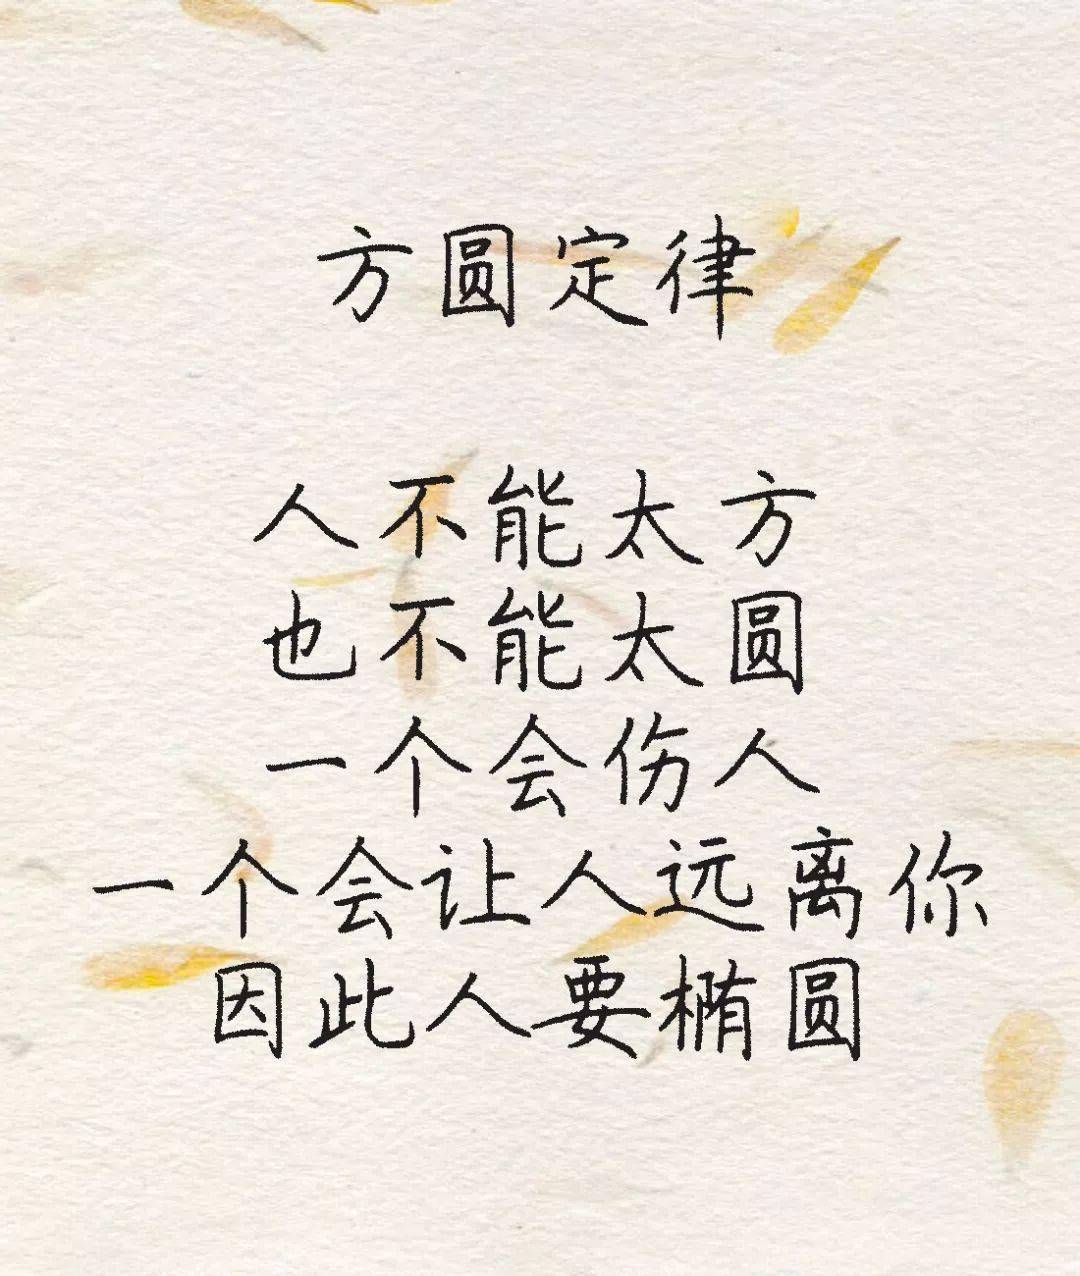 方圆定律
人不能太方
也不能太圆
一个会伤人
一个会让人远离你
因此人要椭圆